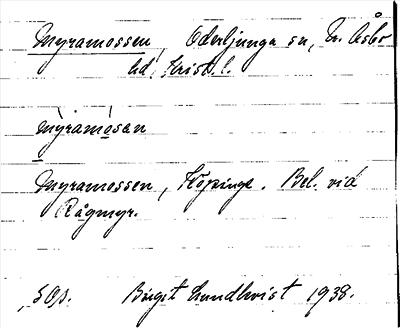 Myramossen, Oderljunga sn, N. Åsbo
hd. Krist. l.
mỳramòsan
Myramossen, Köpinge. Bel. vid
Rågmyr.
SOp. Birgit Lundkvist 1938.